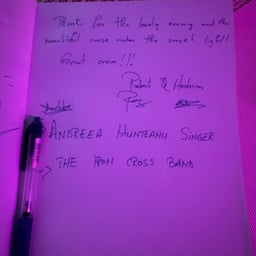 Thanks for this lovely evening and the
beautiful cruise under the sunset light!
Great crew!!!
Robert &
ANDREEA MUNTEANU SINGER
THE MOM CROSS BAND